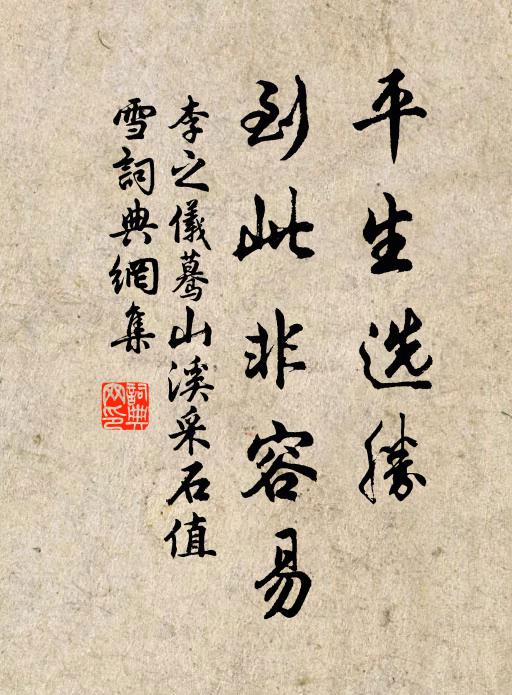 平生选勝
到此非容易
李之儀蓦山溪采石值
雪詞典網集
詞典
网印